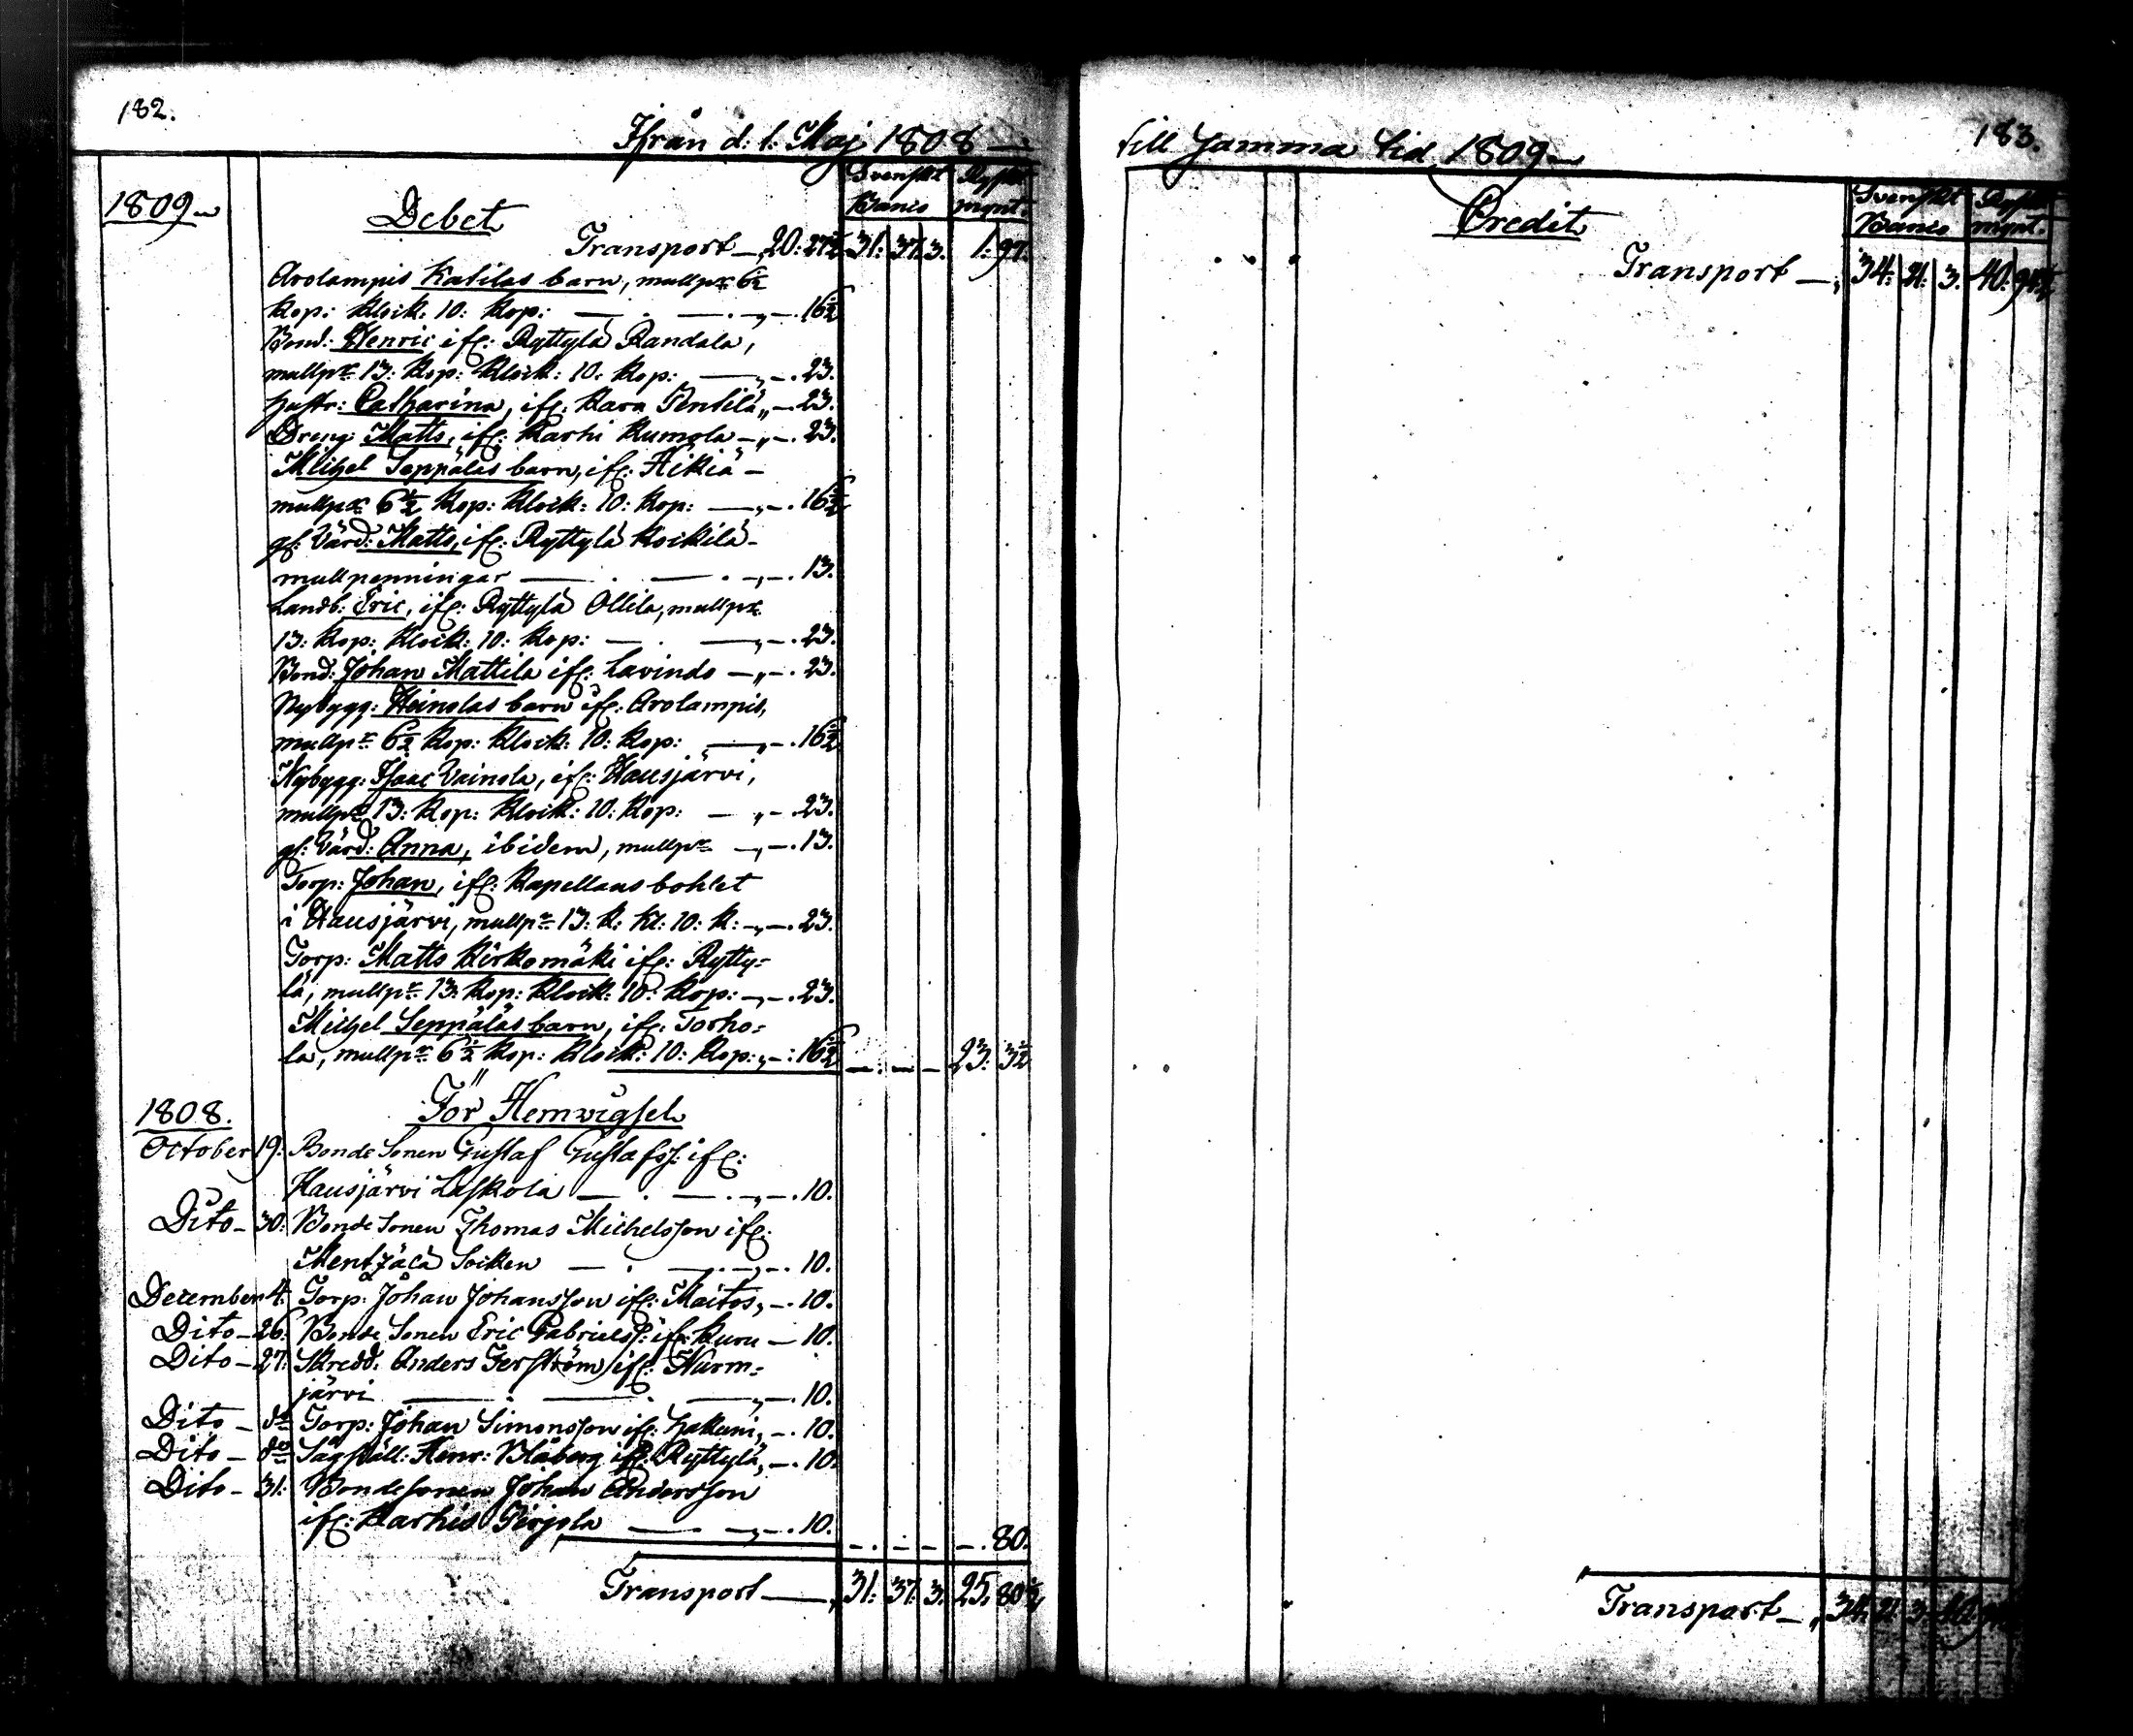 182.
Ifrån d: 1. Maj 1808
1809
Debet
Svenskt Banco
Ryskt mynt.
Transport — 20: 27½ 31: 37: 3. 1: 97.
Arolampis Katilas barn, mullp:r 6½
Kop: Klock: 10: Kop: — . — . — „ — . 16½
Bond: Henric ifr: Ryttylä Pandala,
mullp:r 13: Kop: Klock: 10: Kop: — „ — . 23.
Hustr: Catharina, ifr: Kara Pentilä „ — . 23.
Dreng Matts, ifr: Karhi Kumola — „ — . 23.
Michel Seppäläs barn, ifr: Hikiä —
mullp:r 6½ Kop: Klock: 10: Kop: — „ — . 16½
gl: Värd: Matts, ifr: Ryttylä Kockilä —
mullpenningar — . — . „ — . 13.
Landb: Eric, ifr: Ryttylä Ollila, mullp:r
13: Kop: Klock: 10: Kop: — . — „ — . 23.
Bond: Johan Mattila ifr: Lavindo — „ — . 23.
Nybygg: Heinolas barn ifr: Arolampis,
mullp:r 6½ Kop: Klock: 10: Kop: — „ — . 16½
Nybygg: Isaac Vainola, ifr: Hausjärvi,
mullp:r 13: Kop: Klock: 10: Kop: — „ — . 23.
gl: Värd: Anna, ibidem, mullp:r — „ — . 13.
Torp: Johan, ifr: Kapellans bohlet
i Hausjärvi, mullp:r 13: K: Kl: 10: K: — „ — . 23.
Torp: Matts Kirkomäki ifr: Rytty=
lä, mullp:r 13: Kop: Klock: 10: Kop: — „ — . 23.
Michel Seppäläs barn, ifr: Torho=
la, mullp:r 6½ Kop: Klock: 10: Kop: „ — : 16½ — . — — 23: 3½
För Hemvigsel
1808.
October 19: Bonde Sonen Gustaf Gustafss: ifr:
Hausjärvi Laskola — . — . — „ — . 10.
Dito — 30: Bonde Sonen Thomas Michelsson ifr:
Mentzälä Socken — . — . — „ — . 10.
December 4: Torp: Johan Johansson ifr: Maitos, — . 10.
Dito — 26: Bonde Sonen Eric Gabrielss: ifr: Kuru — 10.
Dito — 27: Skredd: Anders Ferström ifr: Nurm=
järvi — . — . — „ — . 10.
Dito — d:o Torp: Johan Simonsson ifr: Hakuni, — . 10.
Dito — d:o Sågställ: Henr: Blåberg ifr: Ryttylä, — . 10.
Dito — 31: Bondesonen Johan Andersson
ifr: Karhis Pirjola — — „ — . 10. — . — — — . 80.
Transport — , 31: 37: 3. 25, 80½
183.
till Samma tid 1809
Credit
Svenskt Banco
Ryskt mynt.
Transport — , 34: 21: 3. 40: 94½
Transport — „ 34: 21: 3.